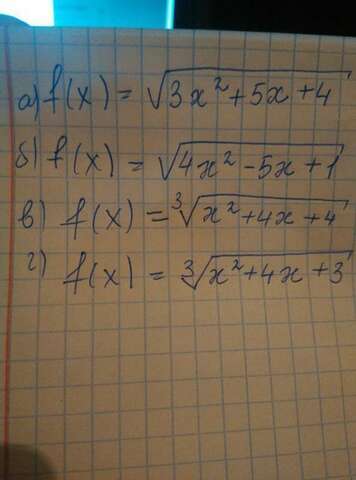 а) f(x) = √(3x² + 5x + 4)
б) f(x) = √(4x² - 5x + 1)
в) f(x) = ∛(x² + 4x + 4)
г) f(x) = ∛(x² + 4x + 3)